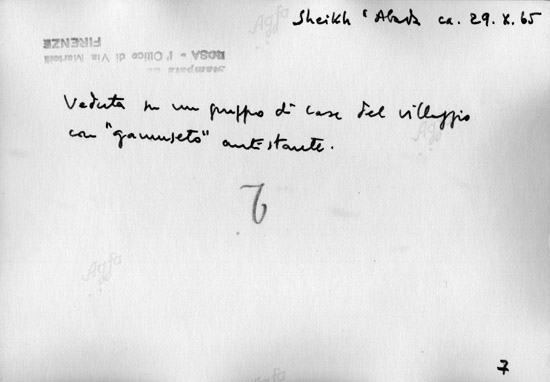 Sheikh 'Abada ca. 29.X.65
Stampata da
ROSA - l'Ottico di Via Martelli
FIRENZE
Veduta su un gruppo di case del villaggio
con "gannuseto" antistante.
7
Agfa
Agfa
Agfa
Agfa
7